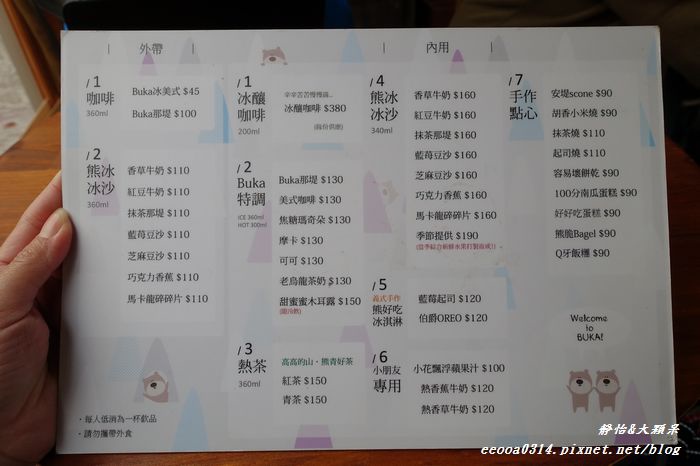 外帶
/1
咖啡
360ml
Buka冰美式 $45
Buka那堤 $100
/2
熊冰
冰沙
360ml
香草牛奶 $110
紅豆牛奶 $110
抹茶那堤 $110
藍莓豆沙 $110
芝麻豆沙 $110
巧克力香蕉 $110
馬卡龍碎碎片 $110
・每人低消為一杯飲品
・請勿攜帶外食
內用
/1
冰釀
咖啡
200ml
辛辛苦苦慢慢滴...
冰釀咖啡 $380
/2
Buka
特調
ICE 360ml
HOT 300ml
Buka那堤 $130
美式咖啡 $130
焦糖瑪奇朵 $130
摩卡 $130
可可 $130
老烏龍茶奶 $130
甜蜜蜜木耳露 $150
/3
熱茶
360ml
高高的山・熊青好茶
紅茶 $150
青茶 $150
/4
熊冰
冰沙
340ml
香草牛奶 $160
紅豆牛奶 $160
抹茶那堤 $160
藍莓豆沙 $160
芝麻豆沙 $160
巧克力香蕉 $160
馬卡龍碎碎片 $160
季節提供 $190
/5
義式手作
熊好吃
冰淇淋
藍莓起司 $120
伯爵OREO $120
/6
小朋友
專用
小花飄浮蘋果汁 $100
熱香蕉牛奶 $120
熱香草牛奶 $120
/7
手作
點心
安堤scone $90
胡香小米燒 $90
抹茶燒 $110
起司燒 $110
容易壞餅乾 $90
100分南瓜蛋糕 $90
好好吃蛋糕 $90
熊脆Bagel $90
Q牙飯糰 $90
Welcome
to
BUKA!
靜怡&大顆呆
eeooa0314.pixnet.net/blog